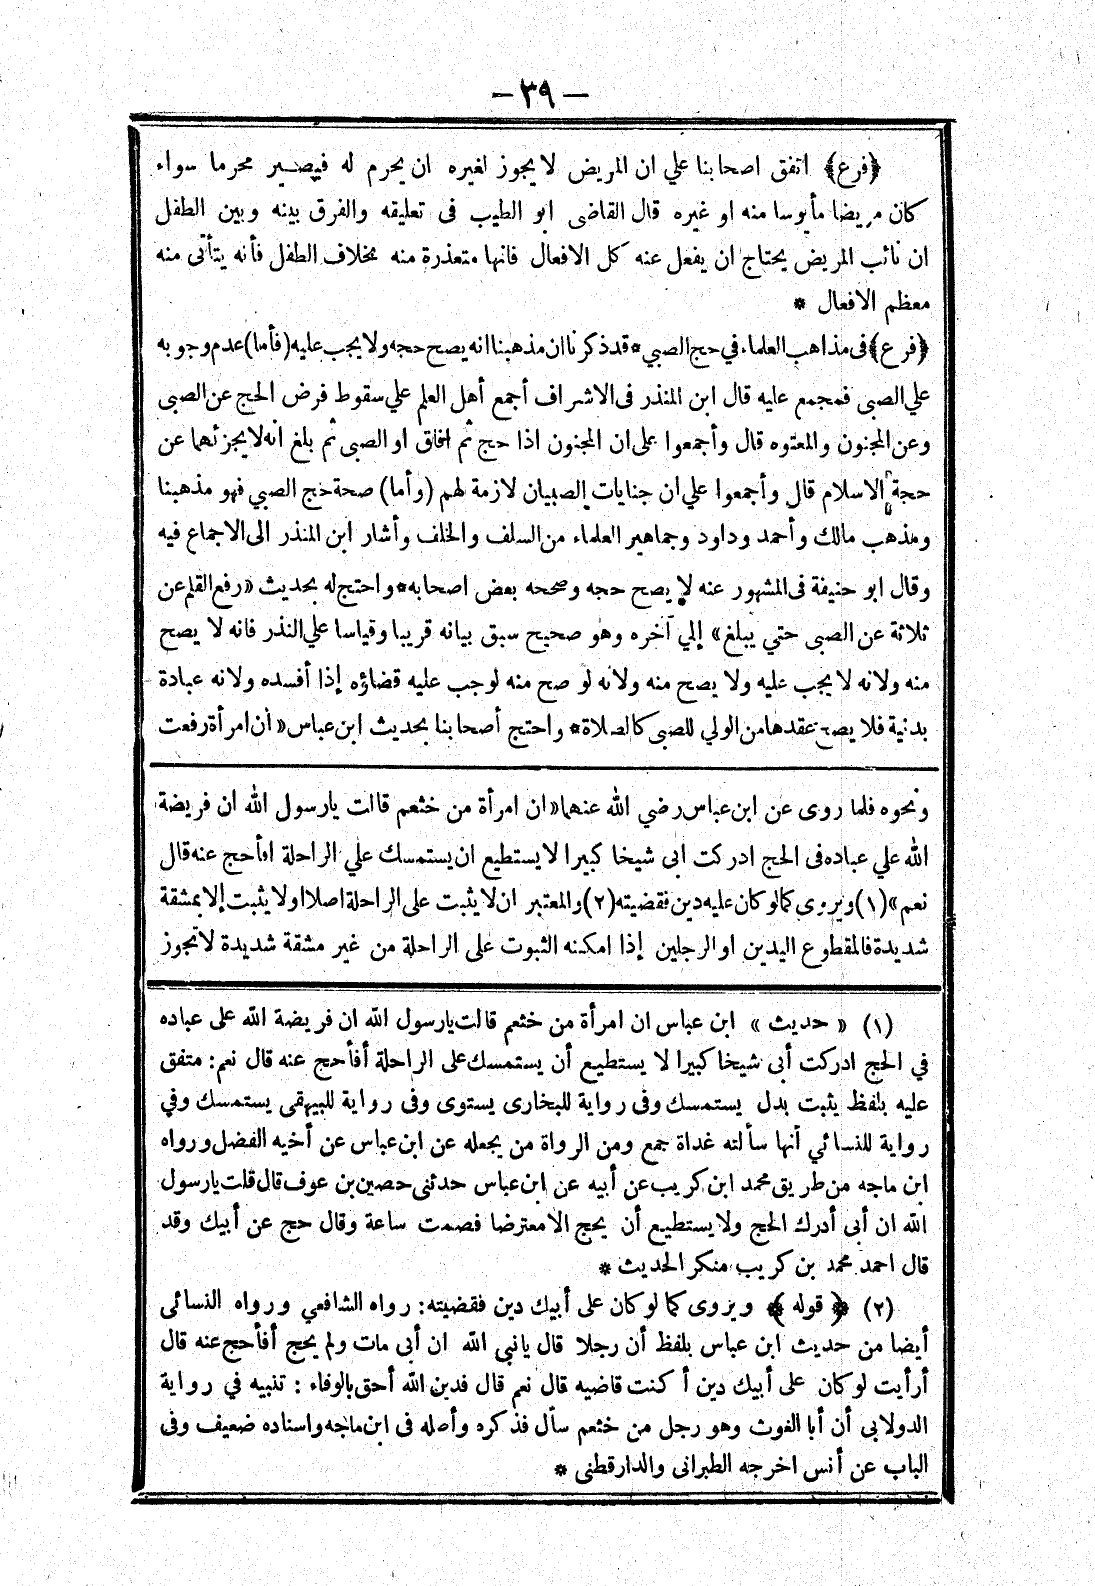 — ٣٩ —
﴿فرع﴾ اتفق اصحابنا علي ان المريض لا يجوز لغيره ان يحرم له فيصير محرما سواء
كان مريضا مأيوسا منه او غيره قال القاضى ابو الطيب فى تعليقه والفرق بينه وبين الطفل
ان نائب المريض يحتاج ان يفعل عنه كل الافعال فانها متعذرة منه بخلاف الطفل فأنه يتأتى منه
معظم الافعال *
﴿فرع﴾ فى مذاهب العلماء في حج الصبي * قد ذكرنا ان مذهبنا انه يصح حجه ولا يجب عليه (فأما) عدم وجوبه
علي الصبى فمجمع عليه قال ابن المنذر فى الاشراف أجمع أهل العلم علي سقوط فرض الحج عن الصبى
وعن المجنون والمعتوه قال وأجمعوا على ان المجنون اذا حج ثم افاق او الصبى ثم بلغ انه لا يجزئهما عن
حجة الاسلام قال وأجمعوا علي ان جنايات الصبيان لازمة لهم (وأما) صحة حج الصبي فهو مذهبنا
ومذهب مالك وأحمد وداود وجماهير العلماء من السلف والخلف وأشار ابن المنذر الى الاجماع فيه
وقال ابو حنيفة فى المشهور عنه لا يصح حجه وصححه بعض اصحابه * واحتج له بحديث «رفع القلم عن
ثلاثة عن الصبى حتي يبلغ» إلي آخره وهو صحيح سبق بيانه قريبا وقياسا علي النذر فانه لا يصح
منه ولانه لا يجب عليه ولا يصح منه ولانه لو صح منه لوجب عليه قضاؤه إذا أفسده ولانه عبادة
بدنية فلا يصح عقدها من الولي للصبى كالصلاة * واحتج أصحابنا بحديث ابن عباس «ان امرأة رفعت
ونحوه فلما روى عن ابن عباس رضي الله عنهما «ان امرأة من خثعم قالت يارسول الله ان فريضة
الله علي عباده فى الحج ادركت ابى شيخا كبيرا لا يستطيع ان يستمسك علي الراحلة افأحج عنه قال
نعم» (١) ويروى كما لو كان عليه دين فقضيته (٢) والمعتبر ان لا يثبت على الراحلة اصلا او لا يثبت إلا بمشقة
شديدة فالمقطوع اليدين او الرجلين إذا امكنه الثبوت على الراحلة من غير مشقة شديدة لا تجوز
(١) « حديث » ابن عباس ان امرأة من خثعم قالت يارسول الله ان فريضة الله على عباده
في الحج ادركت أبى شيخا كبيرا لا يستطيع أن يستمسك على الراحلة أفأحج عنه قال نعم: متفق
عليه بلفظ يثبت بدل يستمسك وفى رواية للبخارى يستوى وفى رواية للبيهقى يستمسك وفي
رواية للنسائي أنها سألته غداة جمع ومن الرواة من يجعله عن ابن عباس عن أخيه الفضل ورواه
ابن ماجه من طريق محمد ابن كريب عن أبيه عن ابن عباس حدثنى حصين بن عوف قال قلت يارسول
الله ان أبى أدرك الحج ولا يستطيع أن يحج الا معترضا فصمت ساعة وقال حج عن أبيك وقد
قال احمد محمد بن كريب منكر الحديث *
(٢) ﴿ قوله ﴾ ويروى كما لو كان على أبيك دين فقضيته: رواه الشافعي ورواه النسائى
أيضا من حديث ابن عباس بلفظ أن رجلا قال يانبى الله ان أبى مات ولم يحج أفأحج عنه قال
أرأيت لو كان على أبيك دين أكنت قاضيه قال نعم قال فدين الله أحق بالوفاء : تنبيه في رواية
الدولابى أن أبا الغوث وهو رجل من خثعم سأل فذكره وأصله فى ابن ماجه واسناده ضعيف وفى
الباب عن أنس اخرجه الطبرانى والدارقطنى *